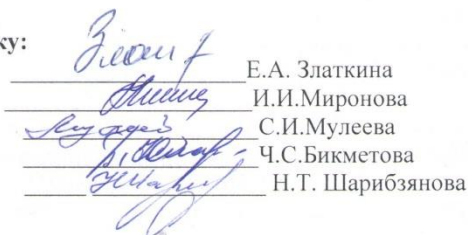 ку:
Е.А. Златкина
И.И.Миронова
С.И.Мулеева
Ч.С.Бикметова
Н.Т. Шарибзянова